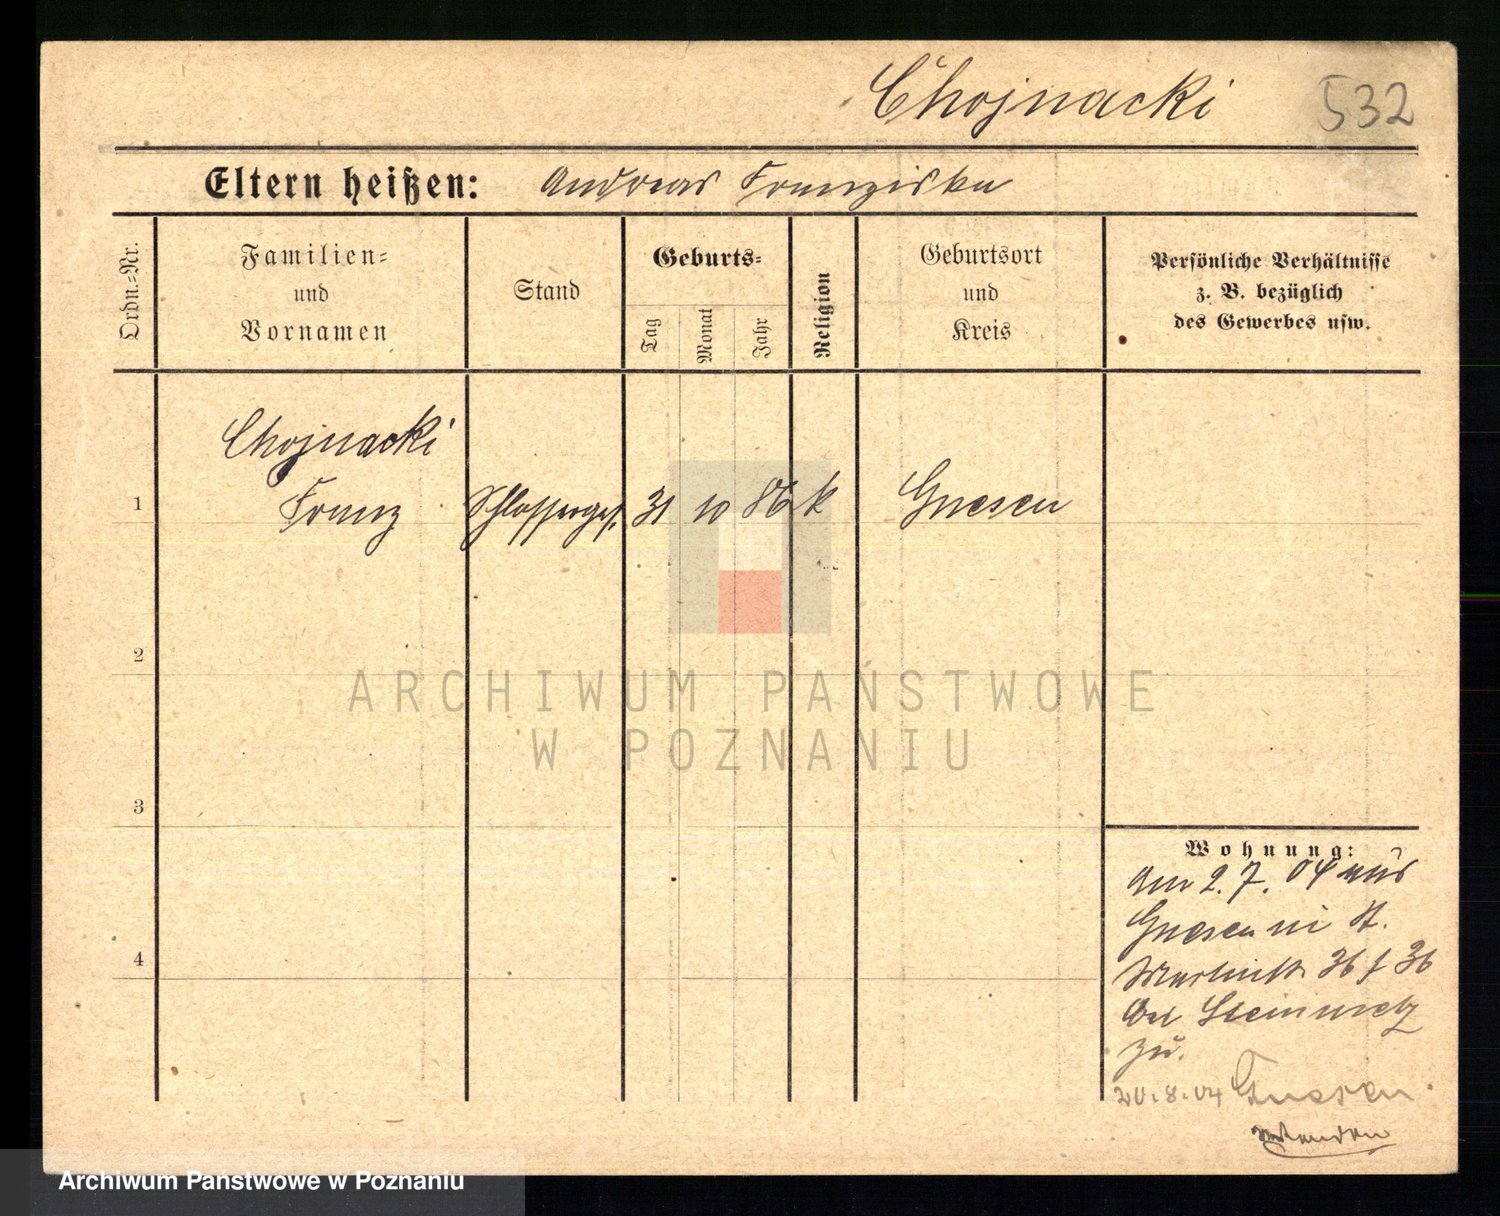 Chojnacki 532
Eltern heißen: Andreas Franziska
Ordn.=Nr.
Familien=
und
Vornamen
Stand
Geburts=
Tag
Monat
Jahr
Religion
Geburtsort
und
Kreis
Persönliche Verhältnisse
z. B. bezüglich
des Gewerbes usw.
Chojnacki
1 Franz Schlosserges. 31 10 86 k Gnesen
2
3
4
ARCHIWUM PAŃSTWOWE
W POZNANIU
Wohnung:
Am 2. 7. 04 aus
Gnesen in St.
Martinstr 36 f 36
bei Steinmetz
zu.
20.8.04 Gnesen
Archiwum Państwowe w Poznaniu